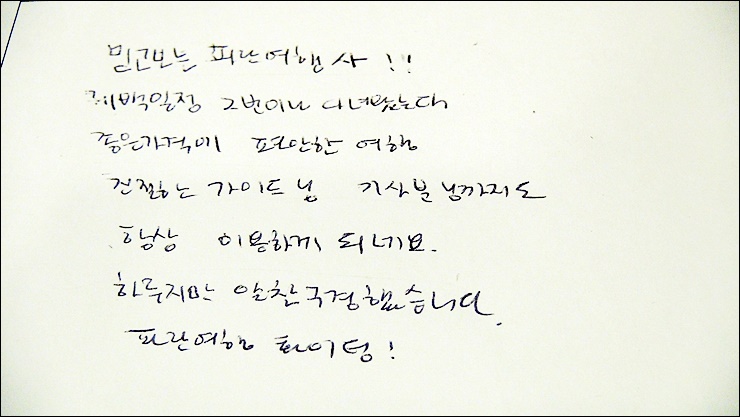 믿고보는 파란여행사!!
태백일정 2번이나 다녀왔는데
좋은가격에 편안한 여행
친절하는 가이드님 기사분님까지도
항상 이용하게 되네요.
하루지만 알찬구경했습니다.
파란여행 화이팅!